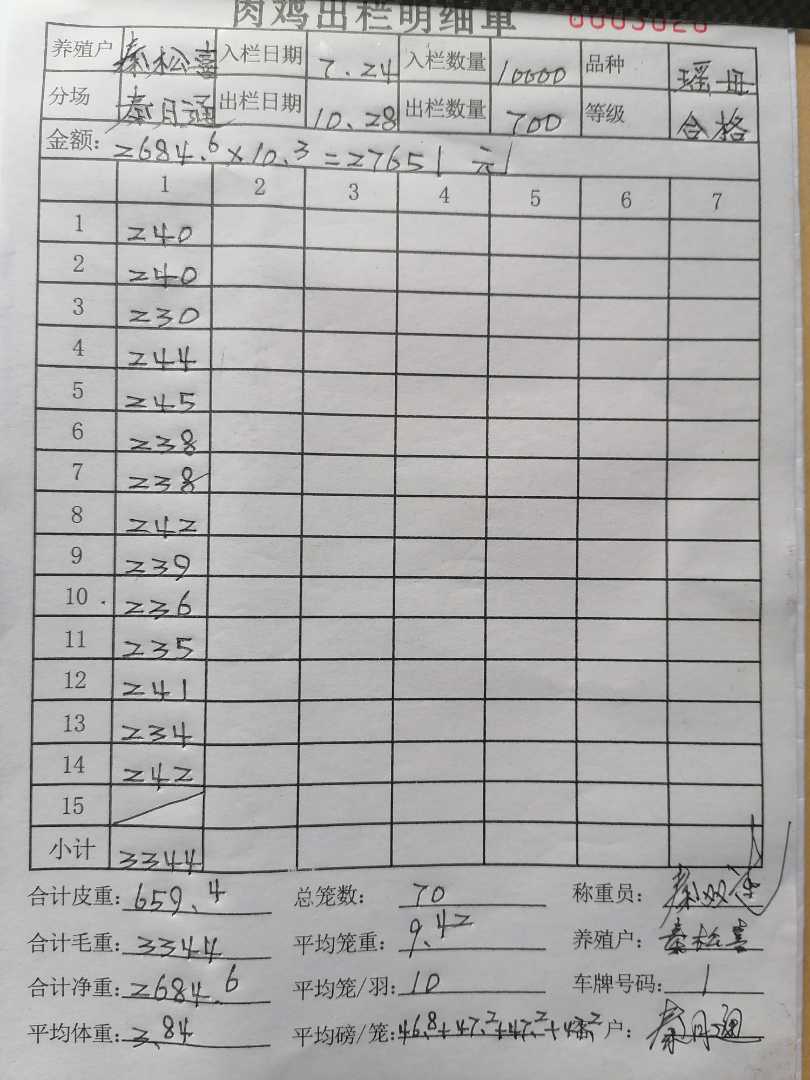 肉鸡出栏明细单 0003020
养殖户 秦松喜 入栏日期 7.24 入栏数量 10000 品种 瑶丹
分场 秦月通 出栏日期 10.28 出栏数量 700 等级 合格
金额: 2684.6×10.3=27651元
1 2 3 4 5 6 7
1 240
2 240
3 230
4 244
5 245
6 238
7 238
8 242
9 239
10 236
11 235
12 241
13 234
14 242
15
小计 3344
合计皮重: 659.4 总笼数: 70 称重员:
合计毛重: 3344 平均笼重: 9.42 养殖户: 秦松喜
合计净重: 2684.6 平均笼/羽: 10 车牌号码: 1
平均体重: 3.84 平均磅/笼: 46.8+47.2+47.2+ 户: 秦月通